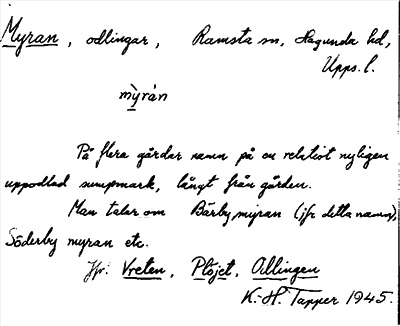 Myran, odlingar, Ramsta sn, Hagunda hd,
Upps. l.
my̆rán
På flera gårdar namn på en relativt nyligen
uppodlad sumpmark, långt från gården.
Man talar om Bärby myran (jfr detta namn),
Söderby myran etc.
Jfr: Vreten, Plöjet, Allingen
K.-H. Tapper 1945.